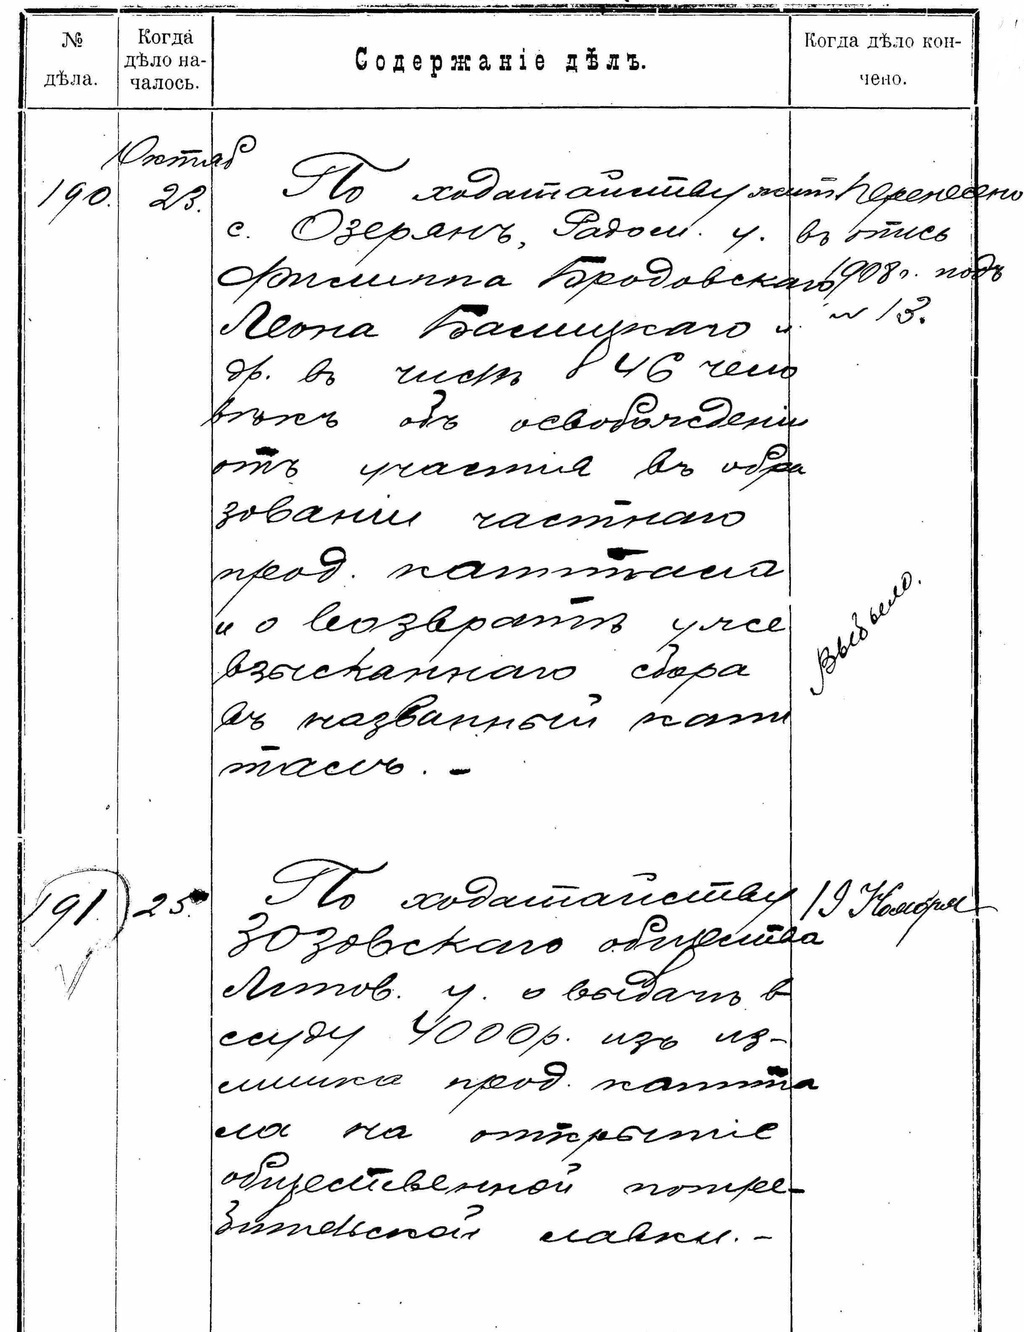 № дѣла.
Когда дѣло началось.
Содержаніе дѣлъ.
Когда дѣло кончено.
Октяб
190. 23.
По ходатайству жит.
с. Озерянъ, Радом. у.
Филиппа Бродовскаго
Леона Балицкаго и
др. въ числѣ 46 чело
вѣкъ объ освобожденіи
отъ участія въ обра
зованіи частнаго
прод. капитала
и о возвратѣ уже
взысканнаго сбора
въ названный капи
талъ. –
Перенесено
въ опись
1908 г. подъ
№ 13.
Выбыло.
191. 25.
По ходатайству
Зозовскаго общества
Липов. у. о выдачѣ в
ссуду 4000 р. изъ из-
лишка прод. капита
ла на открытіе
общественной потре-
бительской лавки. –
19 Ноября